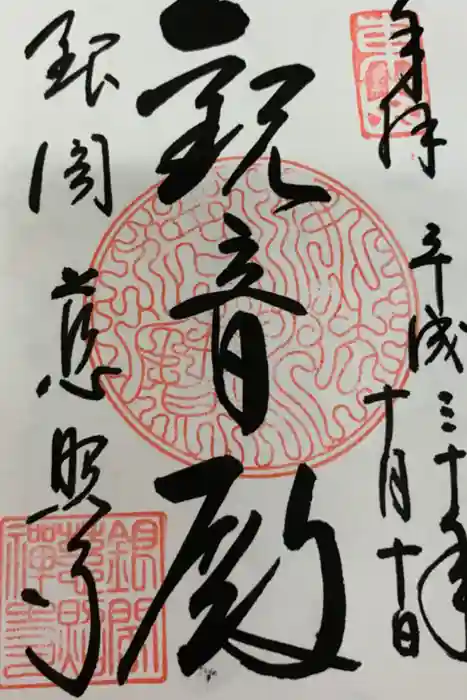 奉拝
平成三十年
十月十日
観音殿
銀閣
慈照寺
銀閣
慈照
禅寺